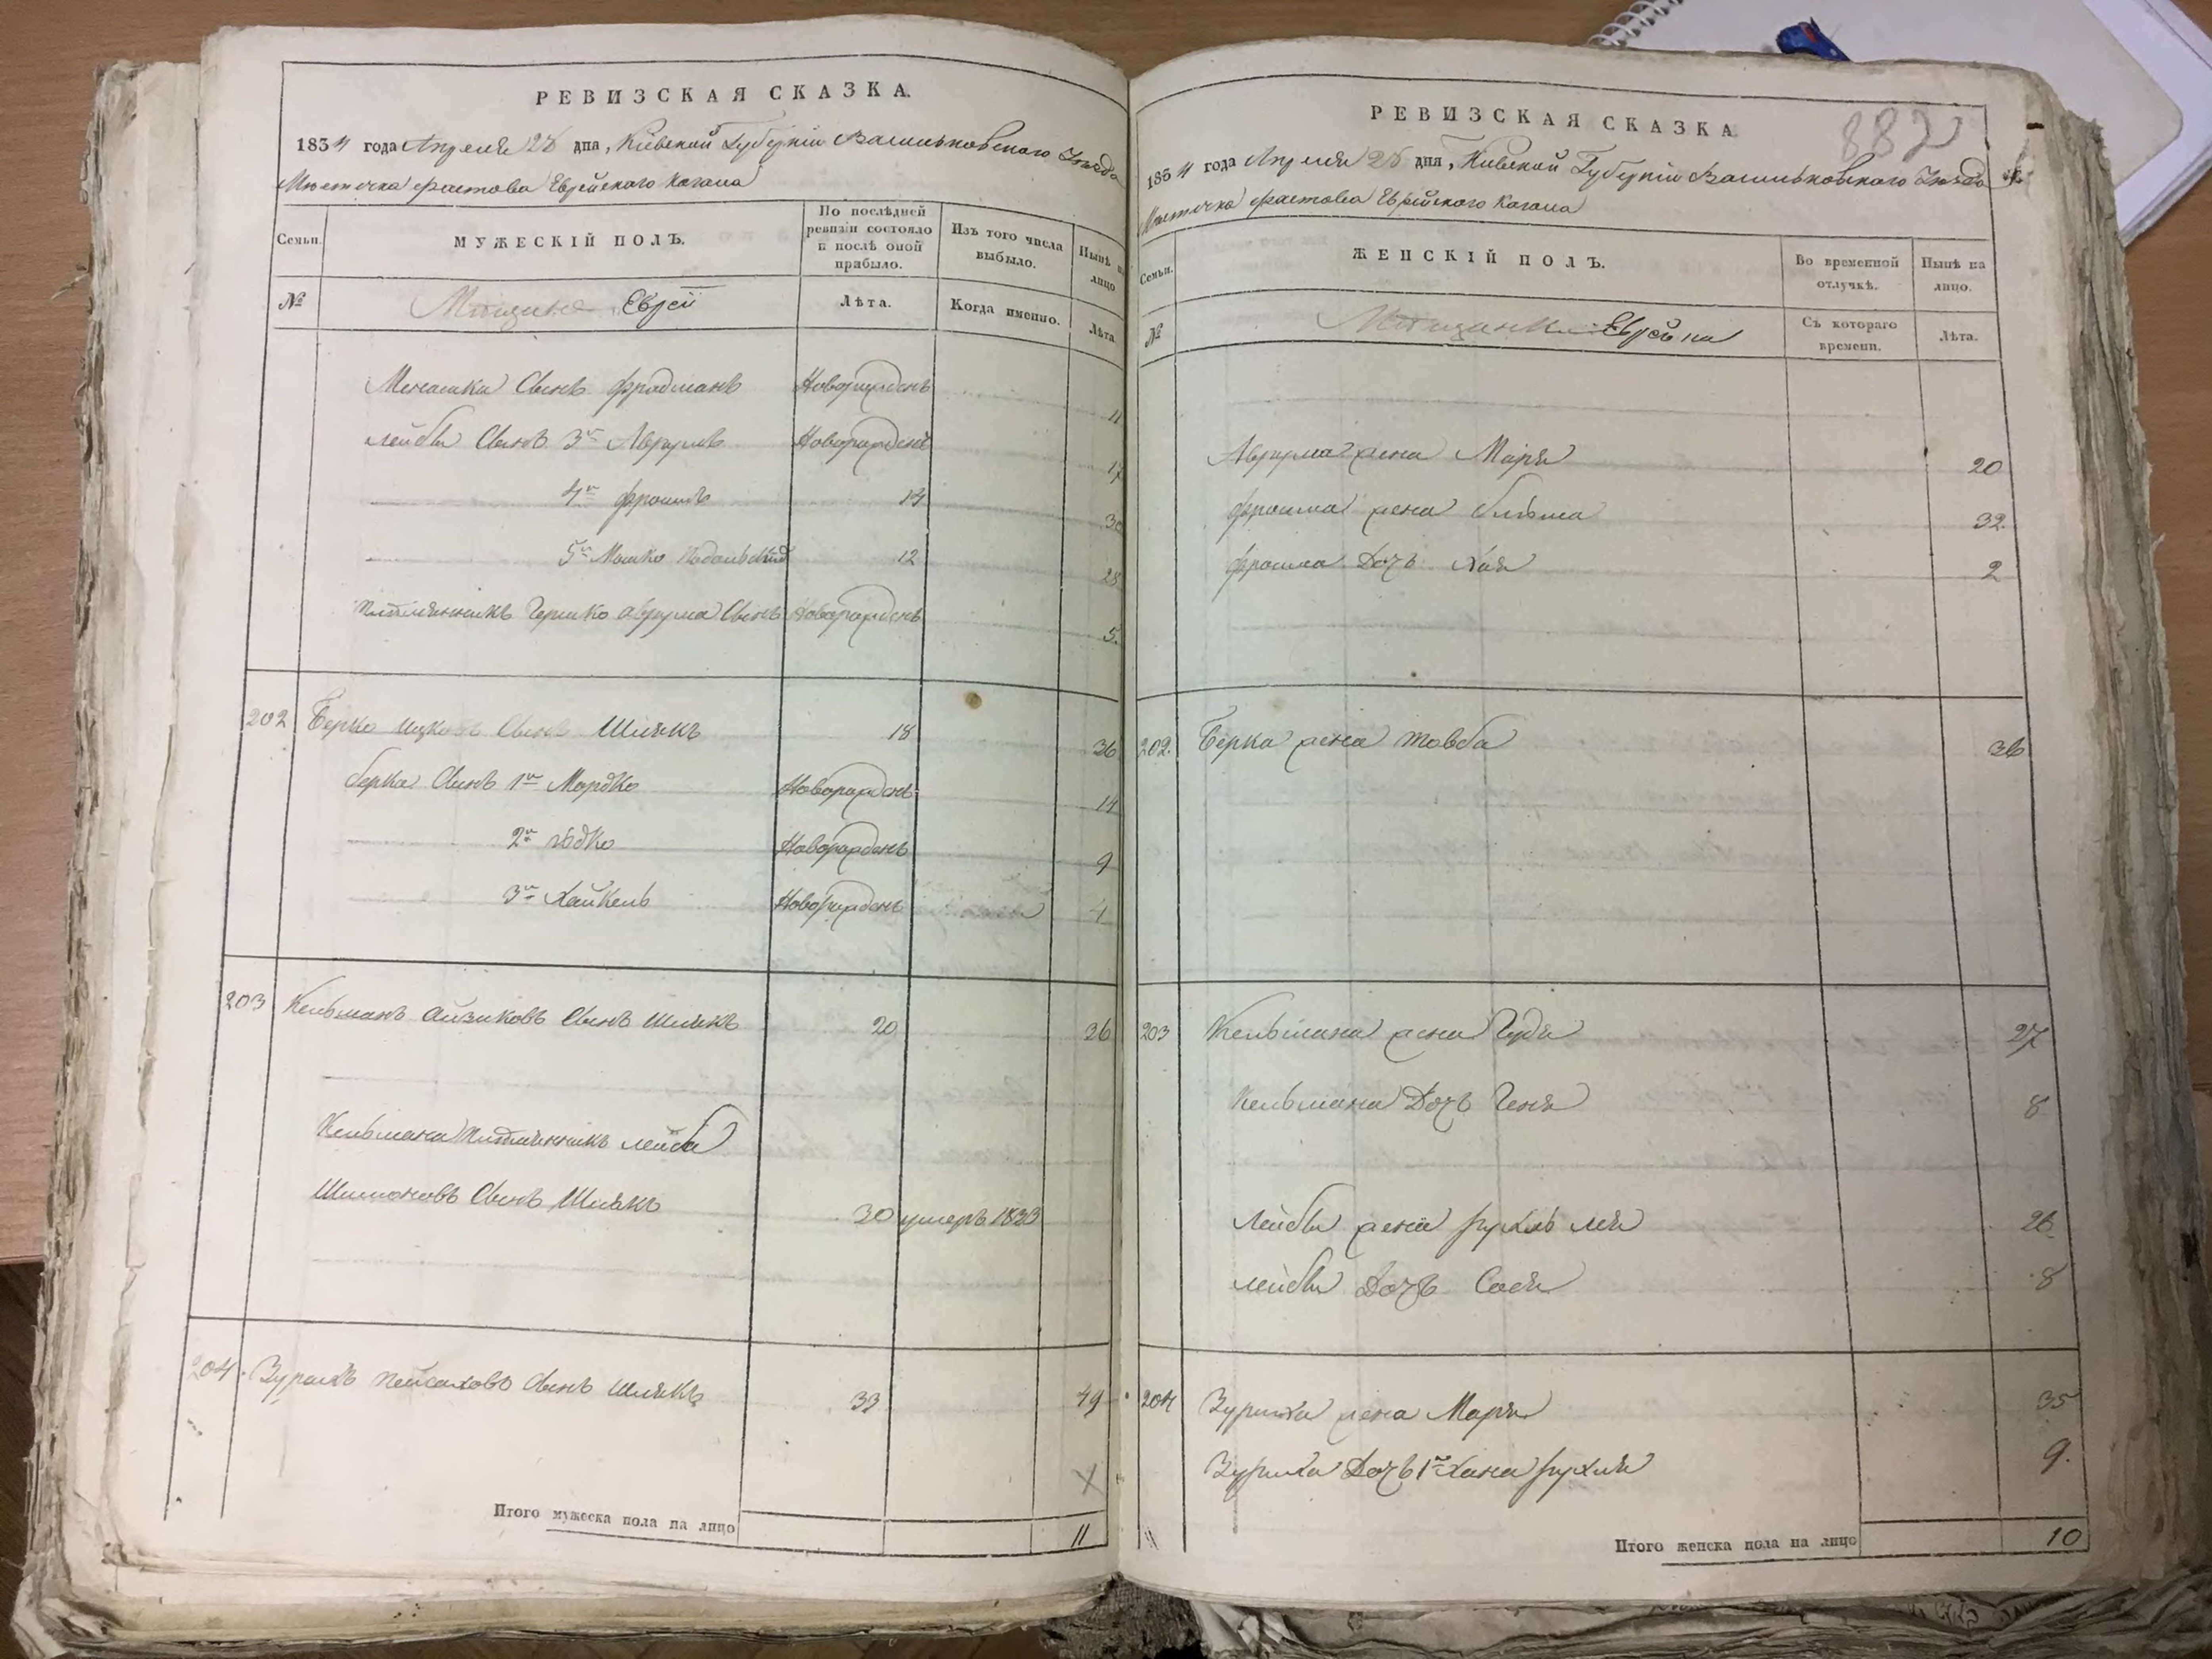 РЕВИЗСКАЯ СКАЗКА.
1834 года Апреля 28 дня, Кіевской Губерніи Васильковскаго Уезда
Местечка Фастова Еврейского Кагала
Семьи.
МУЖЕСКІЙ ПОЛЪ.
По послѣдней ревизіи состояло и послѣ оной прибыло.
Изъ того числа выбыло.
Нынѣ на лицо
№
Мещане Евреи
Лѣта.
Когда именно.
Лѣта
Менашки Сынъ Фроимъ Новорожденъ 11
Лейбы Сынъ 3й Аврумъ Новорожденъ 17
4й Фроимъ 14 30
5й Мошко Подольский 12 28
Племянникъ Гершко Аврума Сынъ Новорожденъ 5.
202 Берко Ицковъ Сынъ Шлякъ 18 36
Берка Сынъ 1й Мордко Новорожденъ 14
2й Юдко Новорожденъ 9
3й Хайкель Новорожденъ 4
203 Кельманъ Айзиковъ Сынъ Шлякъ 20 36
Кельмана Племянникъ Лейба
Шимоновъ Сынъ Шлякъ 30 умеръ 1833
204. Зурахъ Пейсаховъ Сынъ Шлякъ 33 49
X
Итого мужеска пола на лицо 11
РЕВИЗСКАЯ СКАЗКА
882
1834 года Апреля 28 дня, Кіевской Губерніи Васильковскаго Уезда
Местечка Фастова Еврейского Кагала
Семьи.
ЖЕНСКІЙ ПОЛЪ.
Во временной отлучкѣ.
Нынѣ на лицо.
№
Мещанки Еврейки
Съ котораго времени.
Лѣта.
Аврума жена Маря 20
Фроима жена 32.
Фроима Дочь Хая 2
202. Берка жена Товба 36
203 Кельмана жена Гудя 27
Кельмана Дочь Геня 8
Лейбы жена Рухль Лея 26.
Лейбы Дочь Сося 8
204 Зураха жена Маря 35
Зураха Дочь 1я Хана Рухля 9.
Итого женска пола на лицо 10